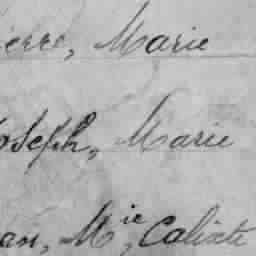 ierre, Marie
oseph, Marie
an, M.ie Calixte